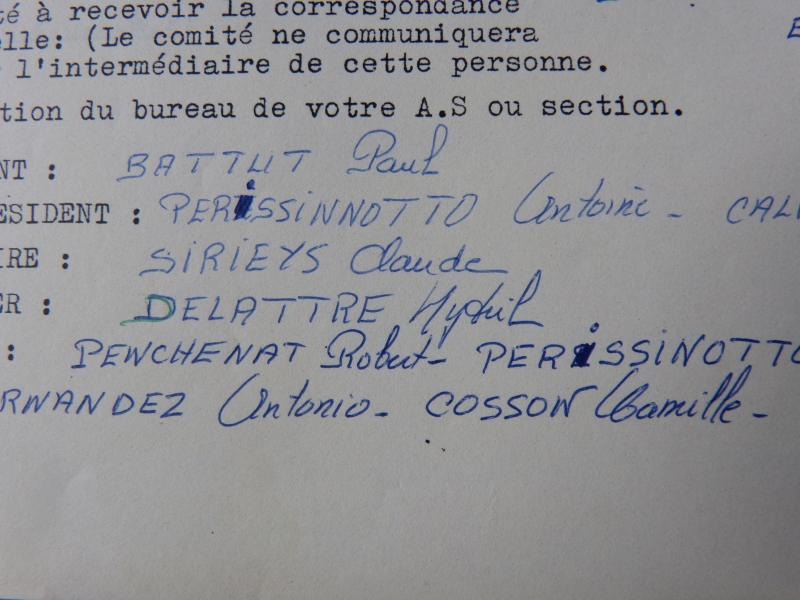 té à recevoir la correspondance
elle: (Le comité ne communiquera
l'intermédiaire de cette personne.
tion du bureau de votre A.S ou section.
NT : BATTUT Paul
ESIDENT : PERISSINNOTTO Antoine - CAL
IRE : SIRIEYS Claude
ER : DELATTRE
: PEWCHENAT Robert - PERISSINOTTO
RNANDEZ Antonio - COSSON Camille -